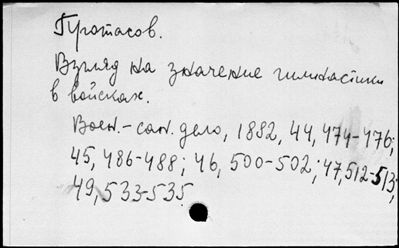 Протасов.
Взгляд на значение гимнастики
в войсках.
Воен.-сан. дело, 1882, 44, 474-476;
45, 486-488; 46, 500-502; 47, 512-513;
49, 533-535